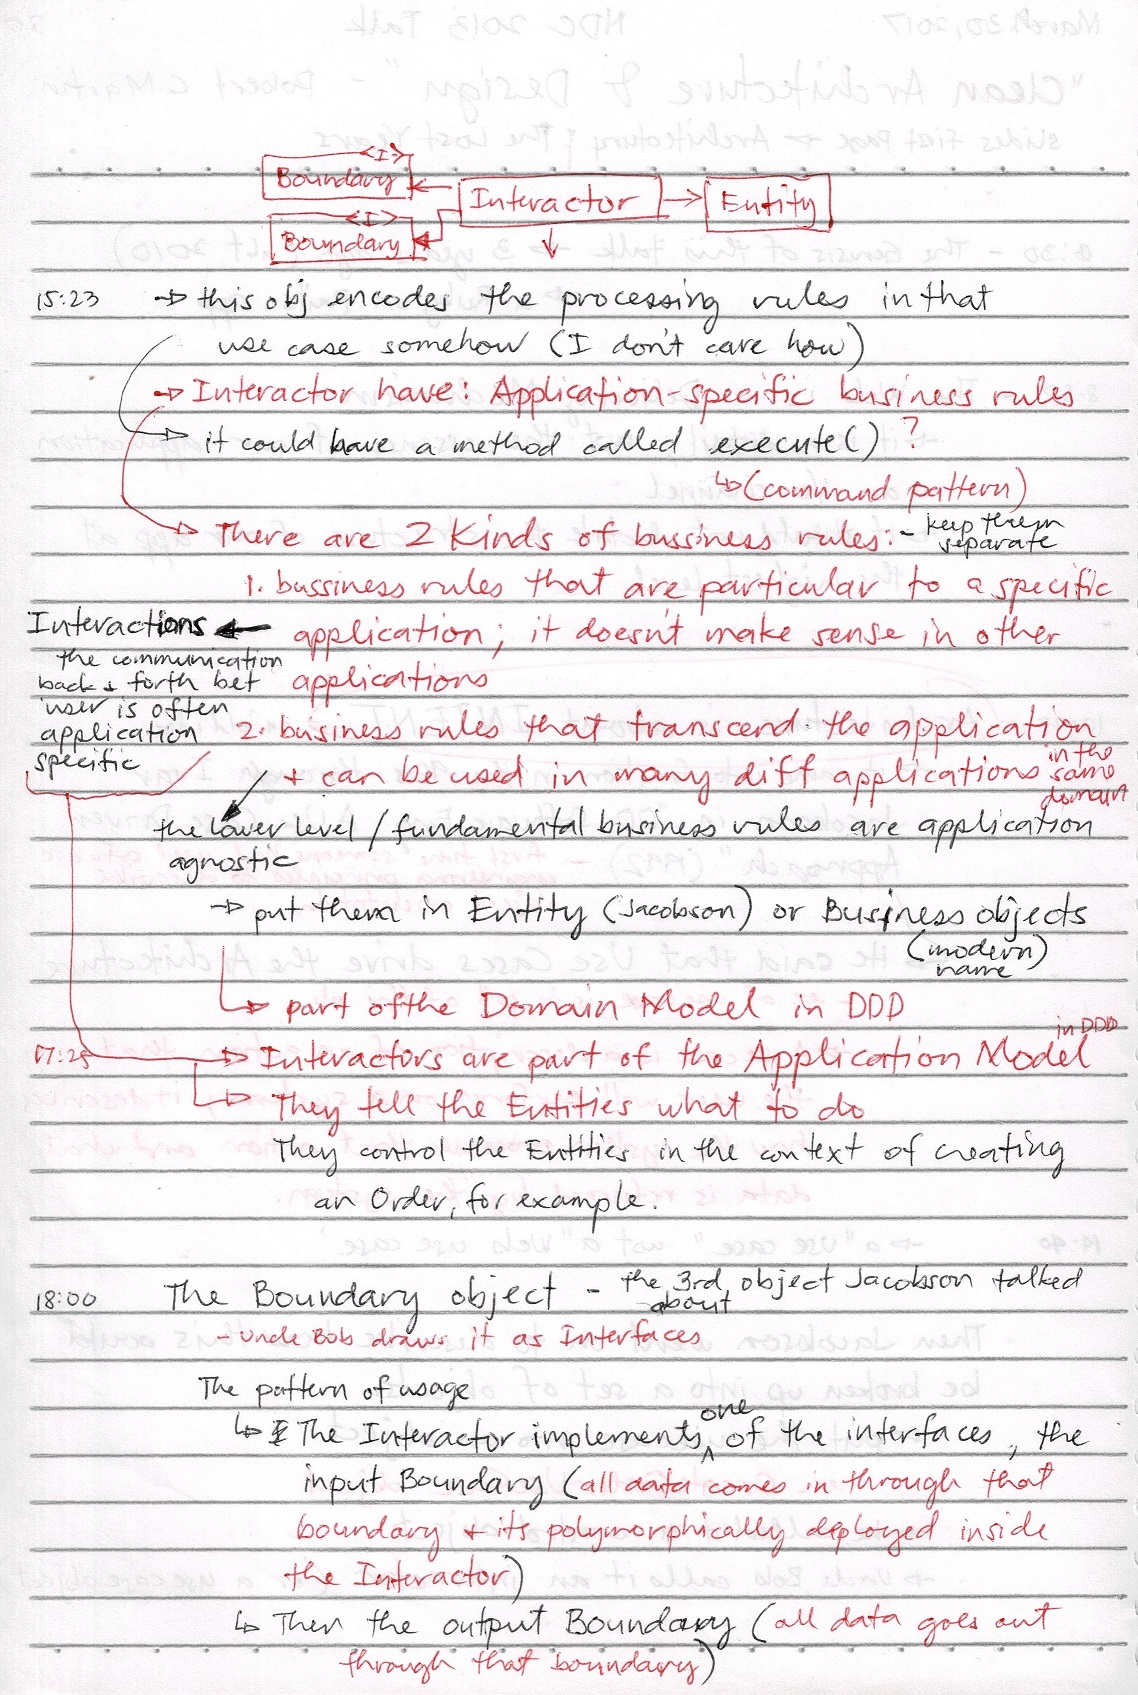 <I>
Boundary
Interactor
Entity
<I>
Boundary
15:23 → this obj encodes the processing rules in that
use case somehow (I don't care how)
→ Interactor have: Application-specific business rules
→ it could have a method called execute() ?
↳ (command pattern)
→ There are 2 Kinds of bussiness rules: - keep them
separate
1. bussiness rules that are particular to a specific
application; it doesn't make sense in other
applications
Interactions ←
the communication
back & forth bet
user is often
application
specific
2. business rules that transcend the application
+ can be used in many diff applications in the
same
domain
the lower level / fundamental business rules are application
agnostic
→ put them in Entity (Jacobson) or Business objects
(modern)
name
→ part of the Domain Model in DDD
17:25 → Interactors are part of the Application Model in DDD
→ They tell the Entities what to do
They control the Entities in the context of creating
an Order, for example.
18:00 The Boundary object - the 3rd object Jacobson talked
about
- Uncle Bob draws it as Interfaces
The pattern of usage
↳ The Interactor implements one of the interfaces, the
input Boundary (all data comes in through that
boundary + its polymorphically deployed inside
the Interactor)
↳ Then the output Boundary (all data goes out
through that boundary)